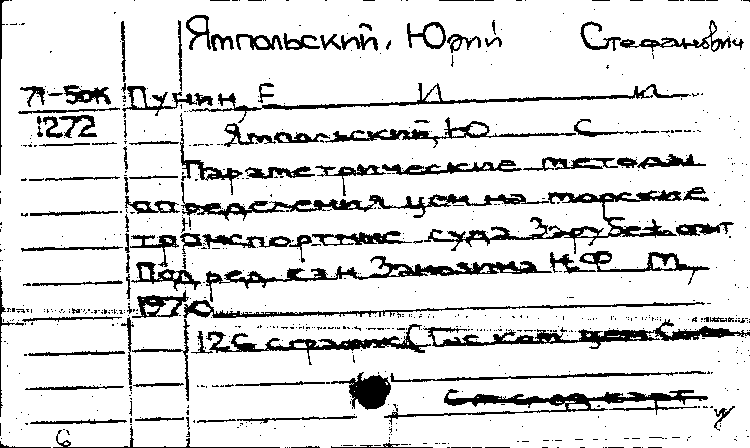 Ямпольский, Юрий Стефанович
71-50к Пунин, Е И и
1272 Ямпольский, Ю С
Параметрические методы
определения цен на морские
транспортные суда Зарубеж опыт
Под ред. к э н Занозина Н.Ф М,
1970
126 с график (Гос ком цен
См след карт
6